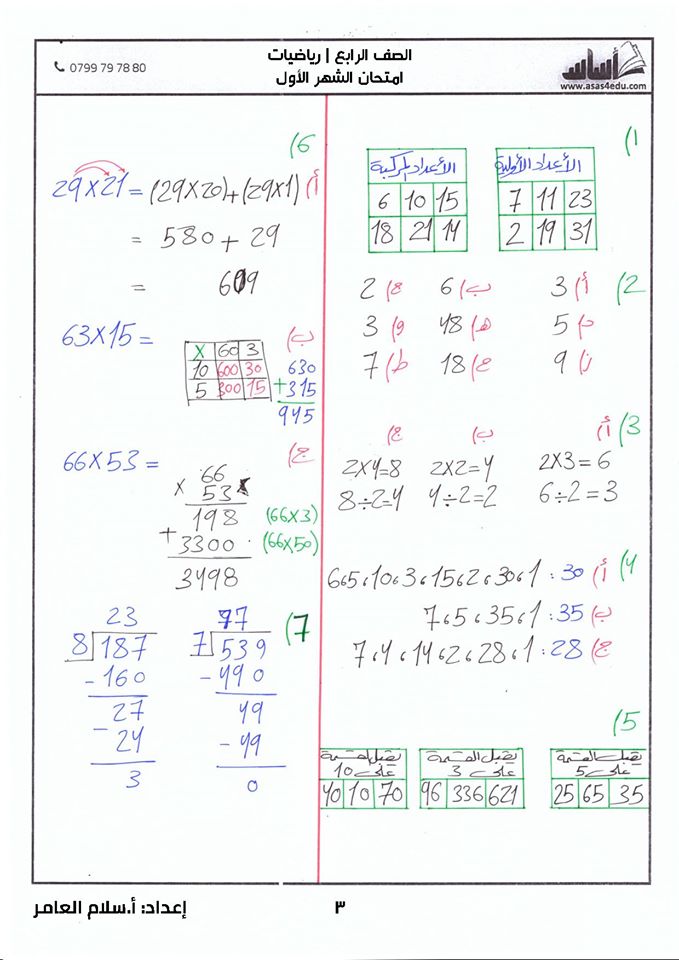 الصف الرابع | رياضيات
امتحان الشهر الأول
0799 79 78 80
أساس
www.asas4edu.com
1)
الأعداد الأولية
7 11 23
2 19 31
الأعداد المركبة
6 10 15
18 21 14
2)
أ) 3 ب) 6 ج) 2
د) 5 هـ) 48 و) 3
ز) 9 ح) 18 ط) 7
3)
أ) ب) ج)
2x3=6 2x2=4 2x4=8
6÷2=3 4÷2=2 8÷2=4
4)
أ) 30: 1، 30، 2، 15، 3، 10، 5، 6
ب) 35: 1، 35، 5، 7
ج) 28: 1، 28، 2، 14، 4، 7
5)
يقبل القسمة على 5
25 65 35
يقبل القسمة على 3
96 336 621
يقبل القسمة على 10
40 10 70
6)
أ) 29x21 = (29x20)+(29x1)
= 580 + 29
= 609
ب) 63x15 =
x 60 3
10 600 30
5 300 15
630
+ 315
945
ج) 66x53 =
66
x 53
198 (66x3)
+ 3300 (66x50)
3498
7)
77
7 539
- 490
49
- 49
0
23
8 187
- 160
27
- 24
3
إعداد: أ.سلام العامر
٣